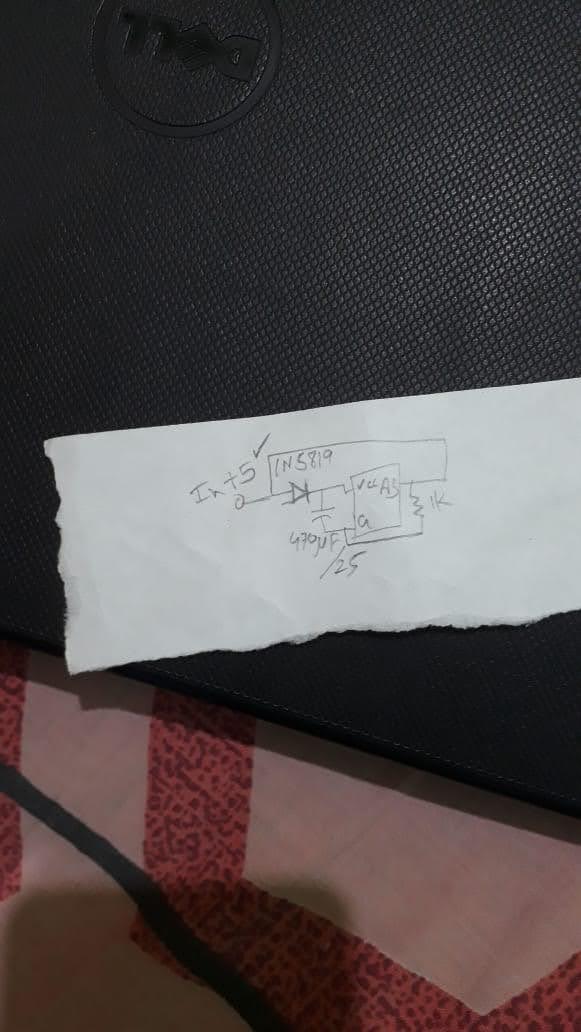 DELL
In +5
1N5819
Vcc A3
G
1K
470µF
/25